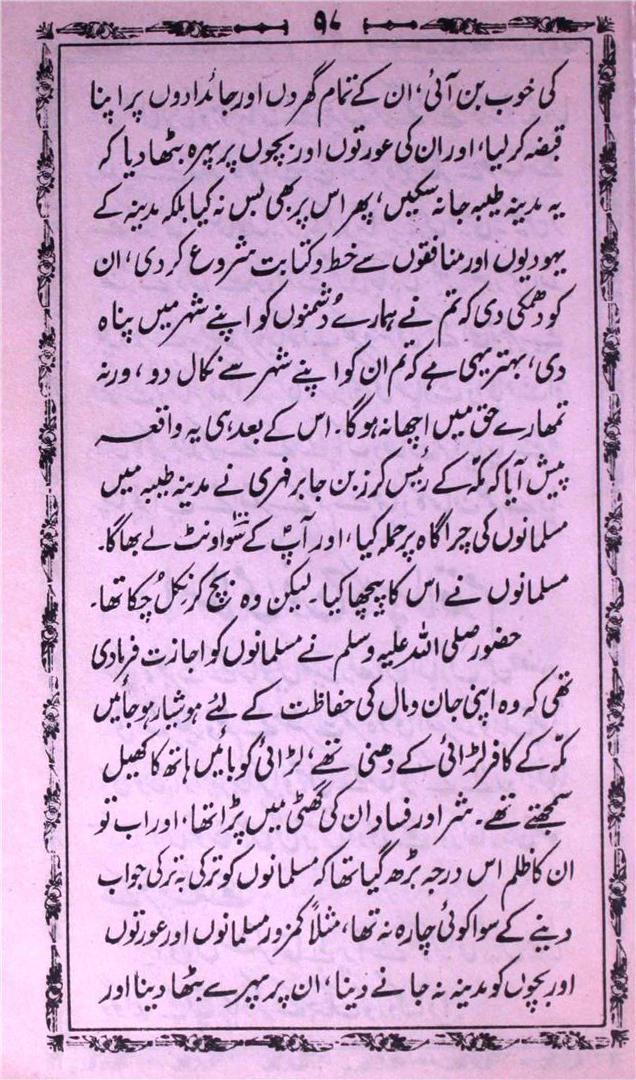 ۹۸
کی خوب بن آئی، ان کے تمام گھروں اور جائدادوں پر اپنا
قبضہ کر لیا، اور ان کی عورتوں اور بچوں پر پہرہ بٹھا دیا کہ
یہ مدینہ طیبہ جا نہ سکیں، پھر اس پر بھی بس نہ کیا بلکہ مدینہ کے
یہودیوں اور منافقوں سے خط و کتابت شروع کر دی، ان
کو دھمکی دی کہ تم نے ہمارے دُشمنوں کو اپنے شہر میں پناہ
دی، بہتر یہی ہے کہ تم ان کو اپنے شہر سے نکال دو، ورنہ
تمھارے حق میں اچھا نہ ہوگا۔ اس کے بعد ہی یہ واقعہ
پیش آیا کہ مکّہ کے رئیس کرز بن جابر فہری نے مدینہ طیبہ میں
مسلمانوں کی چراگاہ پر حملہ کیا، اور آپؐ کے سَو اونٹ لے بھاگا۔
مسلمانوں نے اس کا پیچھا کیا۔ لیکن وہ بچ کر نِکل چُکا تھا۔
حضور صلی اللہ علیہ وسلم نے مسلمانوں کو اجازت فرما دی
تھی کہ وہ اپنی جان و مال کی حفاظت کے لئے ہوشیار ہو جائیں
مکّہ کے کافر لڑائی کے دھنی تھے، لڑائی گو بائیں ہاتھ کا کھیل
سمجھتے تھے۔ شر اور فساد ان کی گھٹی میں پڑا تھا، اور اب تو
ان کا ظلم اس درجہ بڑھ گیا تھا کہ مسلمانوں کو ترکی بہ ترکی جواب
دینے کے سوا کوئی چارہ نہ تھا، مثلاً کمزور مسلمانوں اور عورتوں
اور بچوں کو مدینہ نہ جانے دینا، ان پر پہرے بٹھا دینا اور